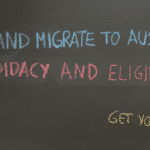 AND MIGRATE TO AUS
DIDACY AND ELIGI
GET YO